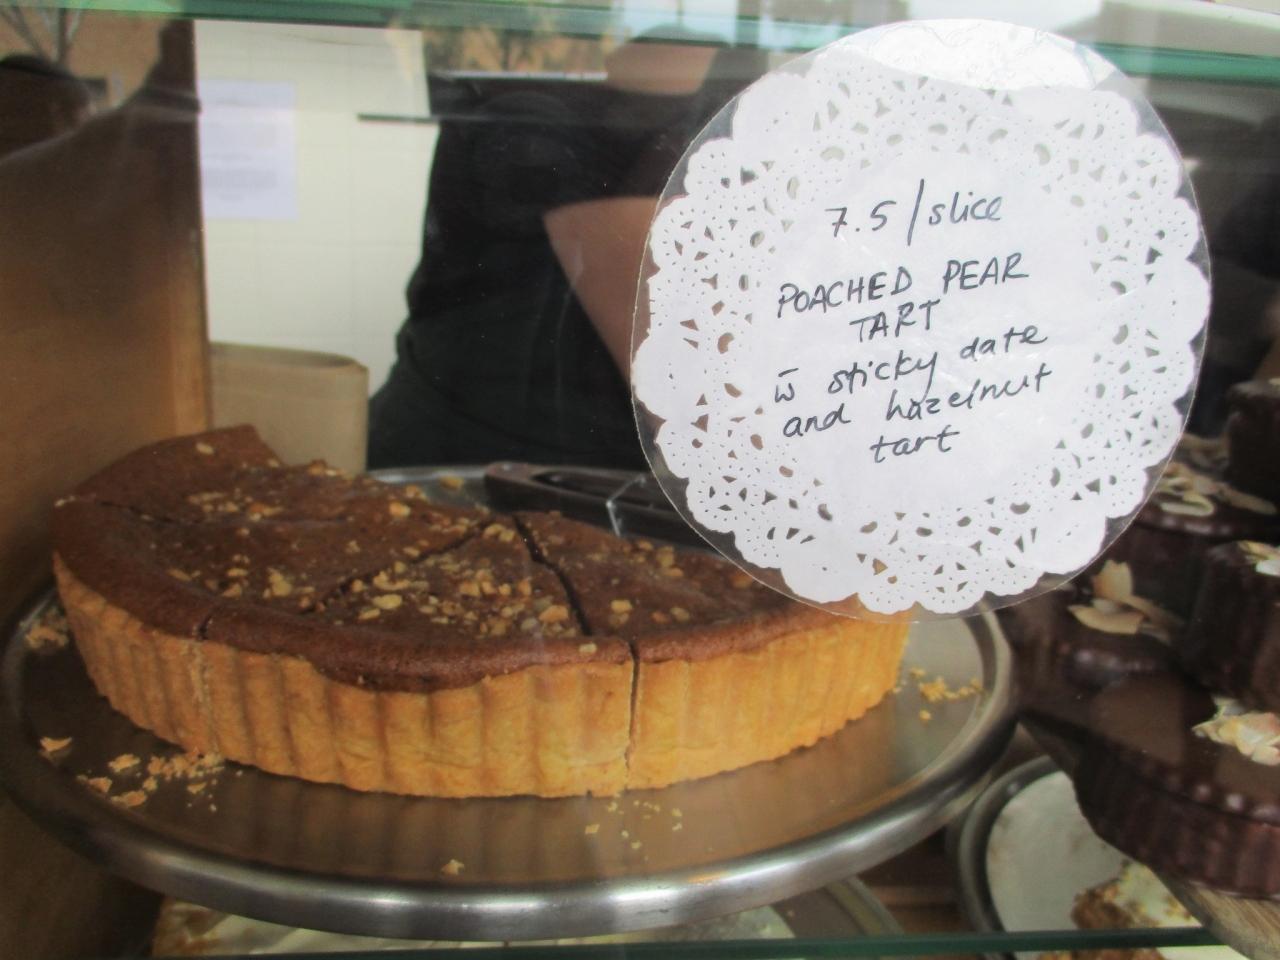 7.5/slice
POACHED PEAR
TART
w̄ sticky date
and hazelnut
tart